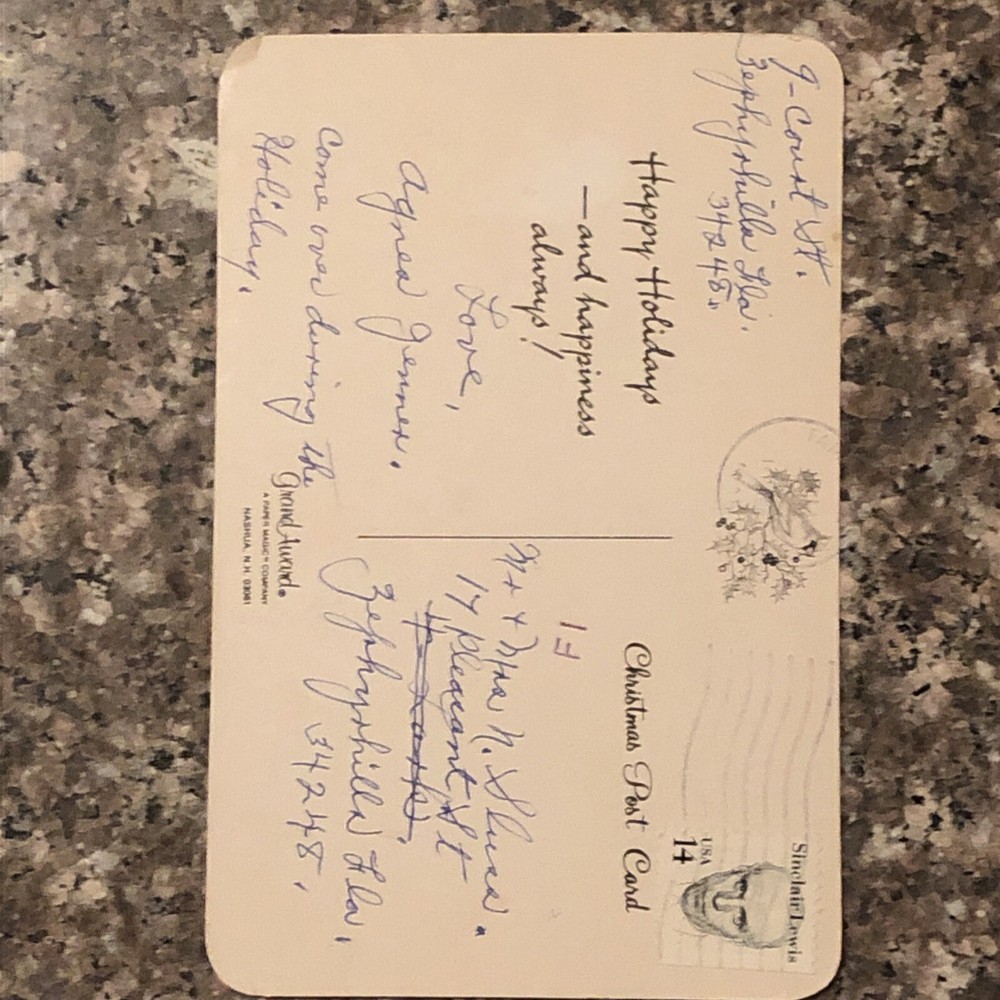 9-Court St.
Zephyrhills Fla.
34248.
Happy Holidays
— and happiness
always!
Love,
Agnes Jenner.
Come over during the
Holiday.
Grand Award
A PAPER MAGIC COMPANY
NASHUA, N.H. 03061
Sinclair Lewis
USA
14
Christmas Post Card
F1
Mr + Mrs N.
17 Pleasant St
Zephyrhills Fla.
34248.